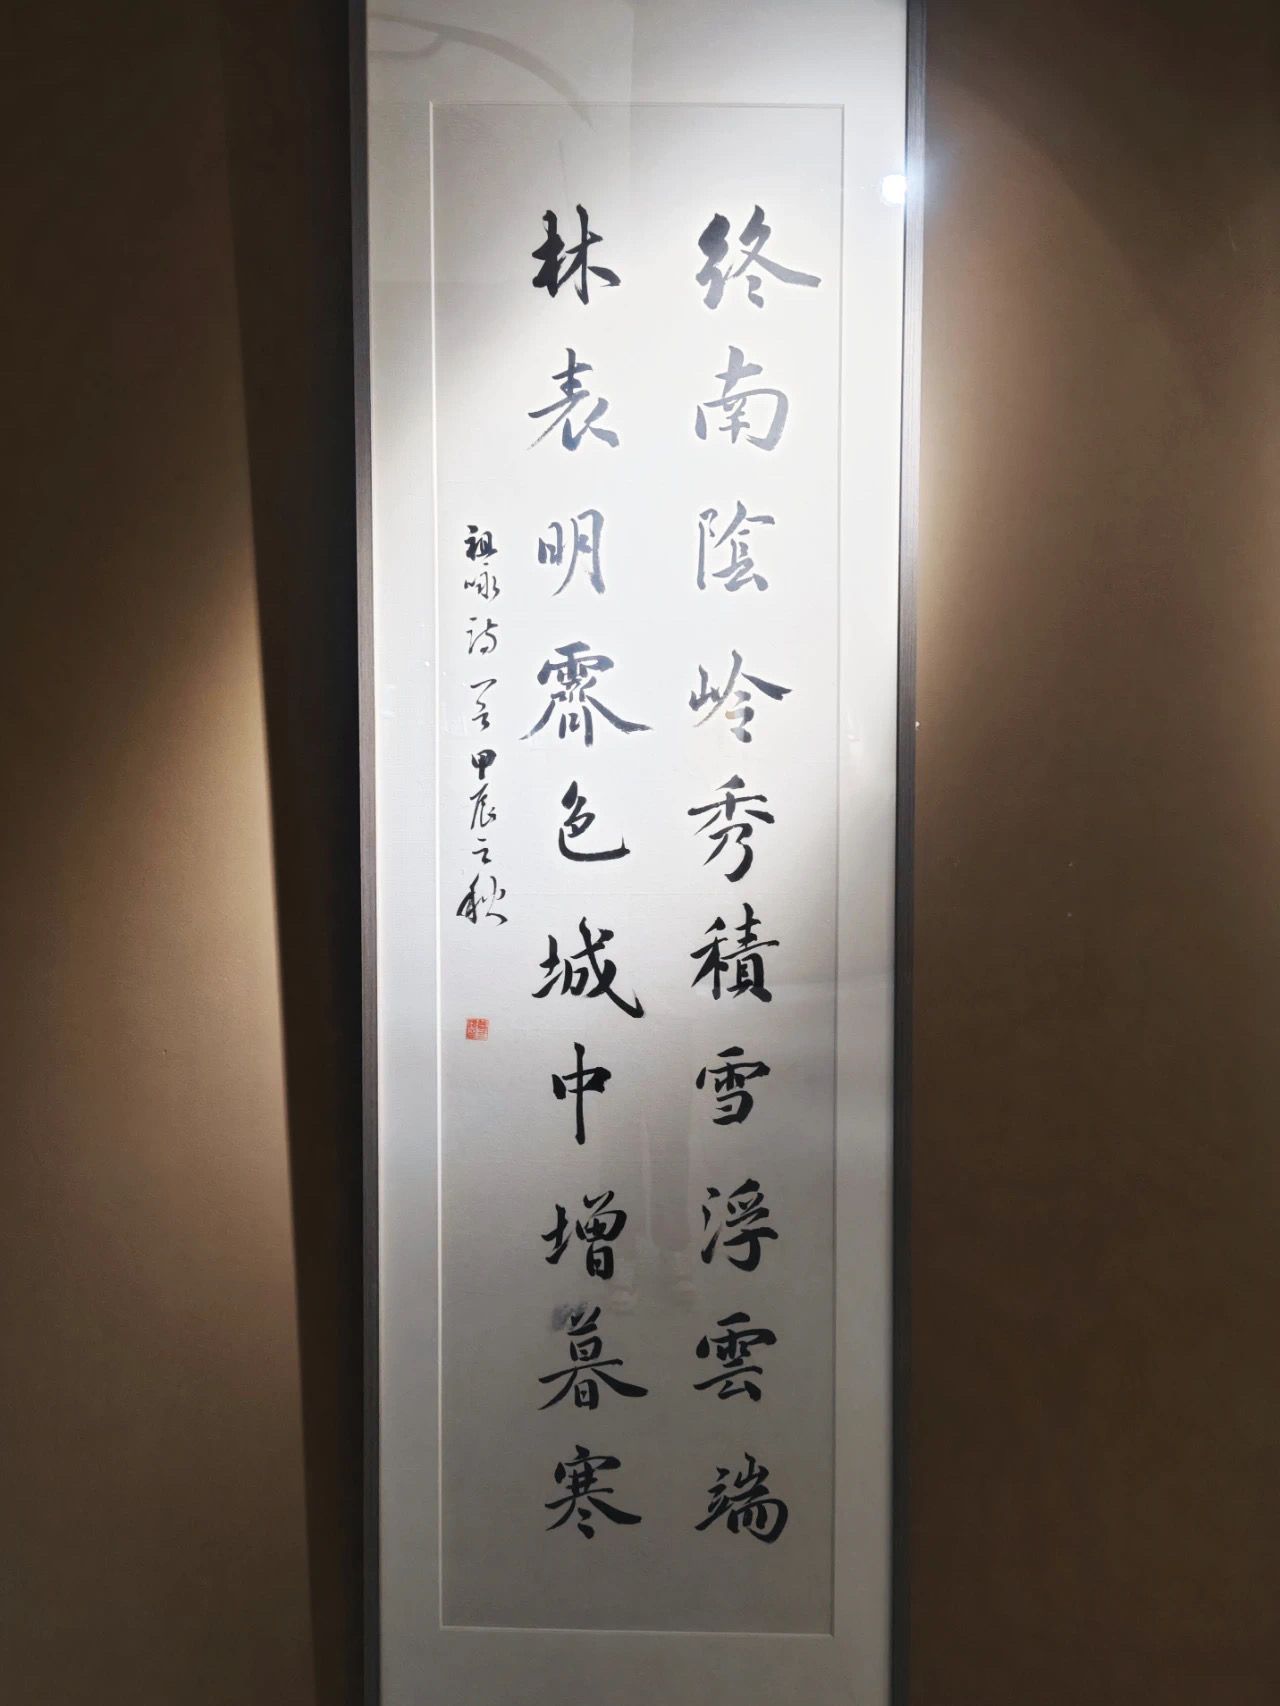 終南陰岭秀積雪浮雲端
林表明霽色城中增暮寒
祖咏詩一首甲辰之秋